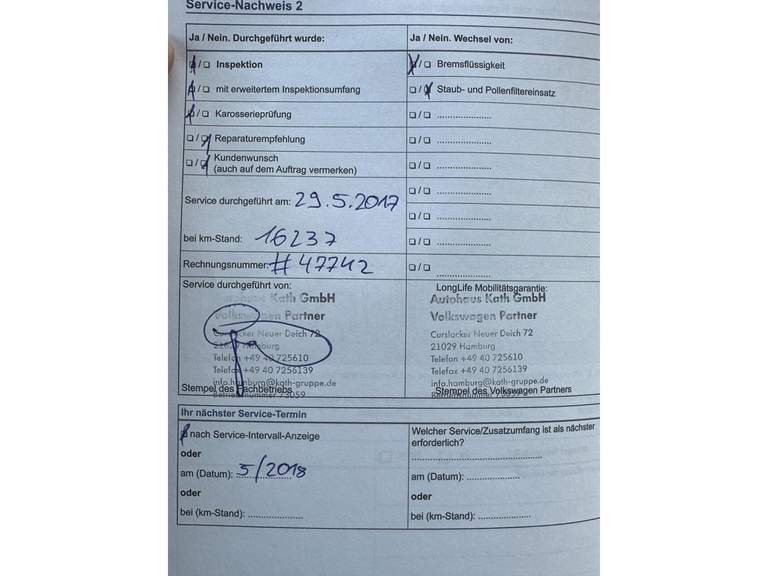 Service-Nachweis 2
Ja / Nein. Durchgeführt wurde:
❏ / ❏ Inspektion
❏ / ❏ mit erweitertem Inspektionsumfang
❏ / ❏ Karosserieprüfung
❏ / ❏ Reparaturempfehlung
❏ / ❏ Kundenwunsch
(auch auf dem Auftrag vermerken)
Service durchgeführt am: 29.5.2017
bei km-Stand: 16237
Rechnungsnummer: #47742
Service durchgeführt von:
Kath GmbH
Volkswagen Partner
Curslacker Neuer Deich 72
21029 Hamburg
Telefon +49 40 725610
Telefax +49 40 7256139
info.hamburg@kath-gruppe.de
Stempel des Fachbetriebs
Betriebsnummer 73059
Ja / Nein. Wechsel von:
❏ / ❏ Bremsflüssigkeit
❏ / ❏ Staub- und Pollenfiltereinsatz
❏ / ❏ .....................
❏ / ❏ .....................
❏ / ❏ .....................
❏ / ❏ .....................
❏ / ❏ .....................
❏ / ❏ .....................
❏ / ❏ .....................
LongLife Mobilitätsgarantie:
Autohaus Kath GmbH
Volkswagen Partner
Curslacker Neuer Deich 72
21029 Hamburg
Telefon +49 40 725610
Telefax +49 40 7256139
info.hamburg@kath-gruppe.de
Stempel des Volkswagen Partners
Ihr nächster Service-Termin
nach Service-Intervall-Anzeige
oder
am (Datum): 5/2018
oder
bei (km-Stand): .....................
Welcher Service/Zusatzumfang ist als nächster
erforderlich?
..................................................
am (Datum): .....................
oder
bei (km-Stand): .....................